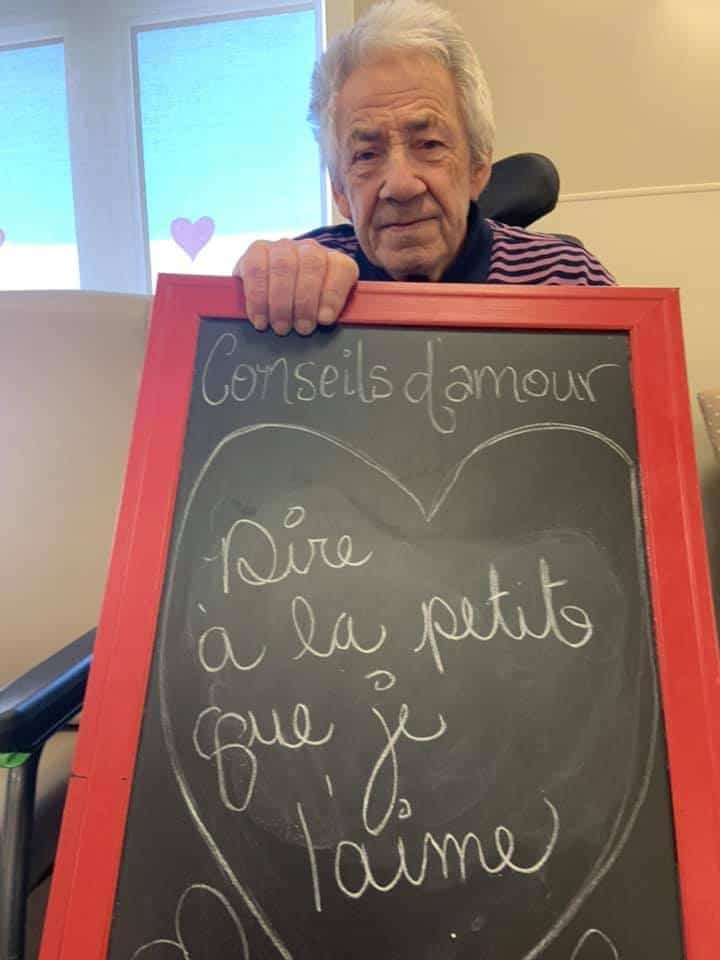 Conseils d'amour
Dire
à la petite
que je
t'aime